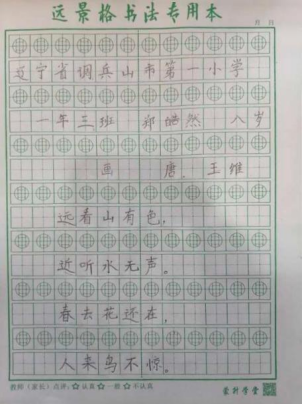 远景格书法专用本
月 日
辽宁省调兵山市第一小学
一年三班 郑皓然 八岁
画 唐。王维
远看山有色，
近听水无声。
春去花还在，
人来鸟不惊。
教师（家长）点评：☆认真 ☆一般 ☆不认真